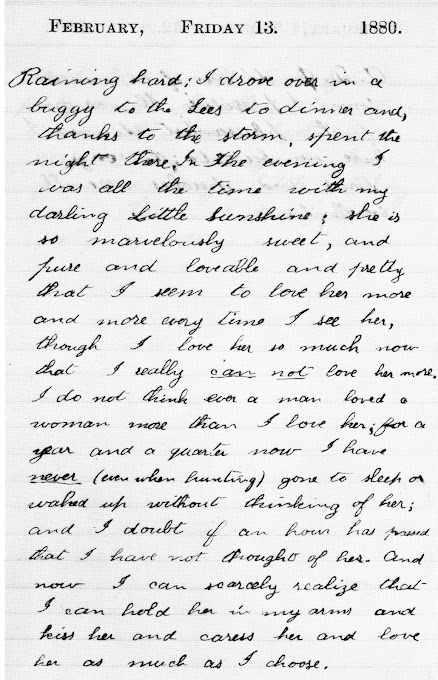 FEBRUARY, FRIDAY 13. 1880.
Raining hard; I drove over in a
buggy to the Lees to dinner and,
thanks to the storm, spent the
night there. In the evening I
was all the time with my
darling Little Sunshine; she is
so marvelously sweet, and
pure and loveable and pretty
that I seem to love her more
and more every time I see her,
though I love her so much now
that I really can not love her more.
I do not think ever a man loved a
woman more than I love her; for a
year and a quarter now I have
never (even when hunting) gone to sleep or
waked up without thinking of her;
and I doubt if an hour has passed
that I have not thought of her. And
now I can scarcely realize that
I can hold her in my arms and
kiss her and caress her and love
her as much as I choose.